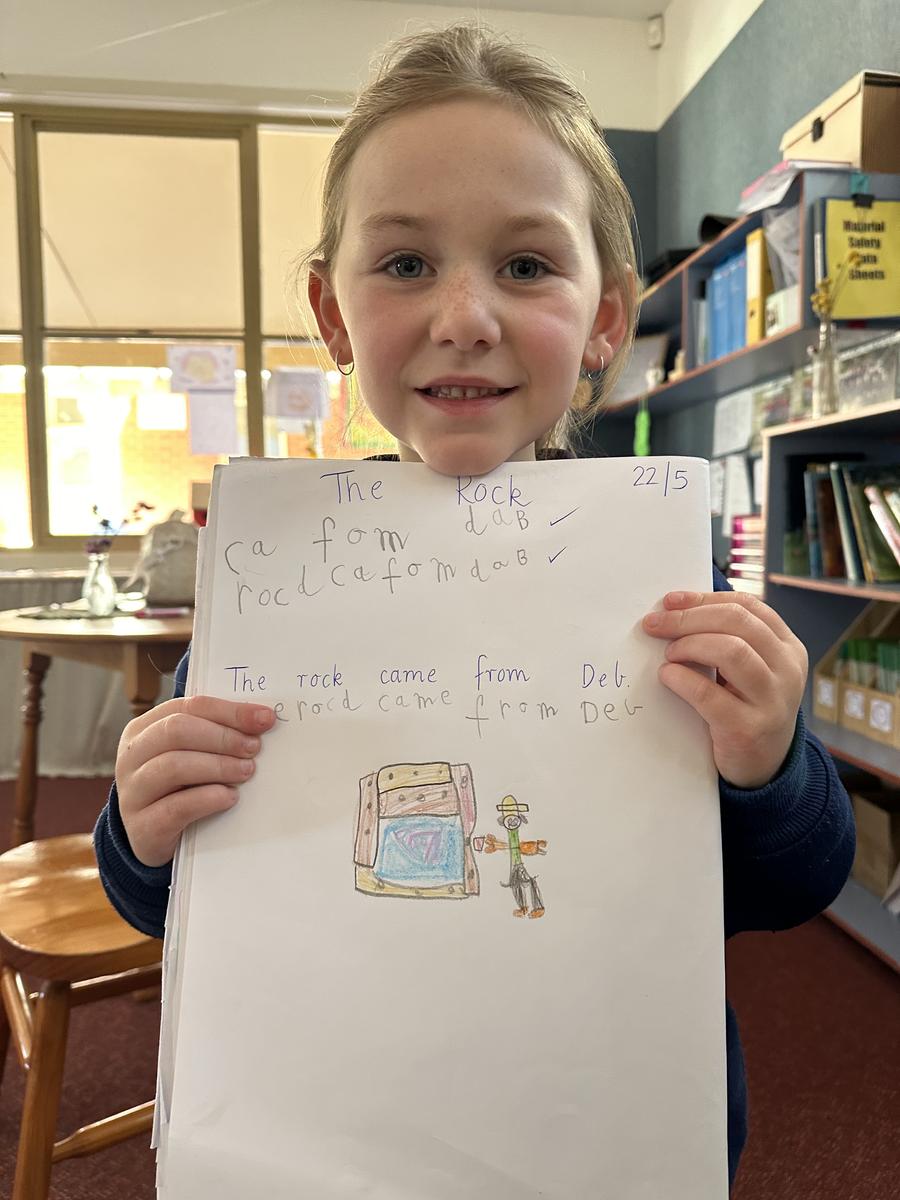 The Rock 22/5
ca fom daB ✓
rocd ca fom daB ✓
The rock came from Deb.
e rocd came from Deb
Material
Safety
Data
Sheets